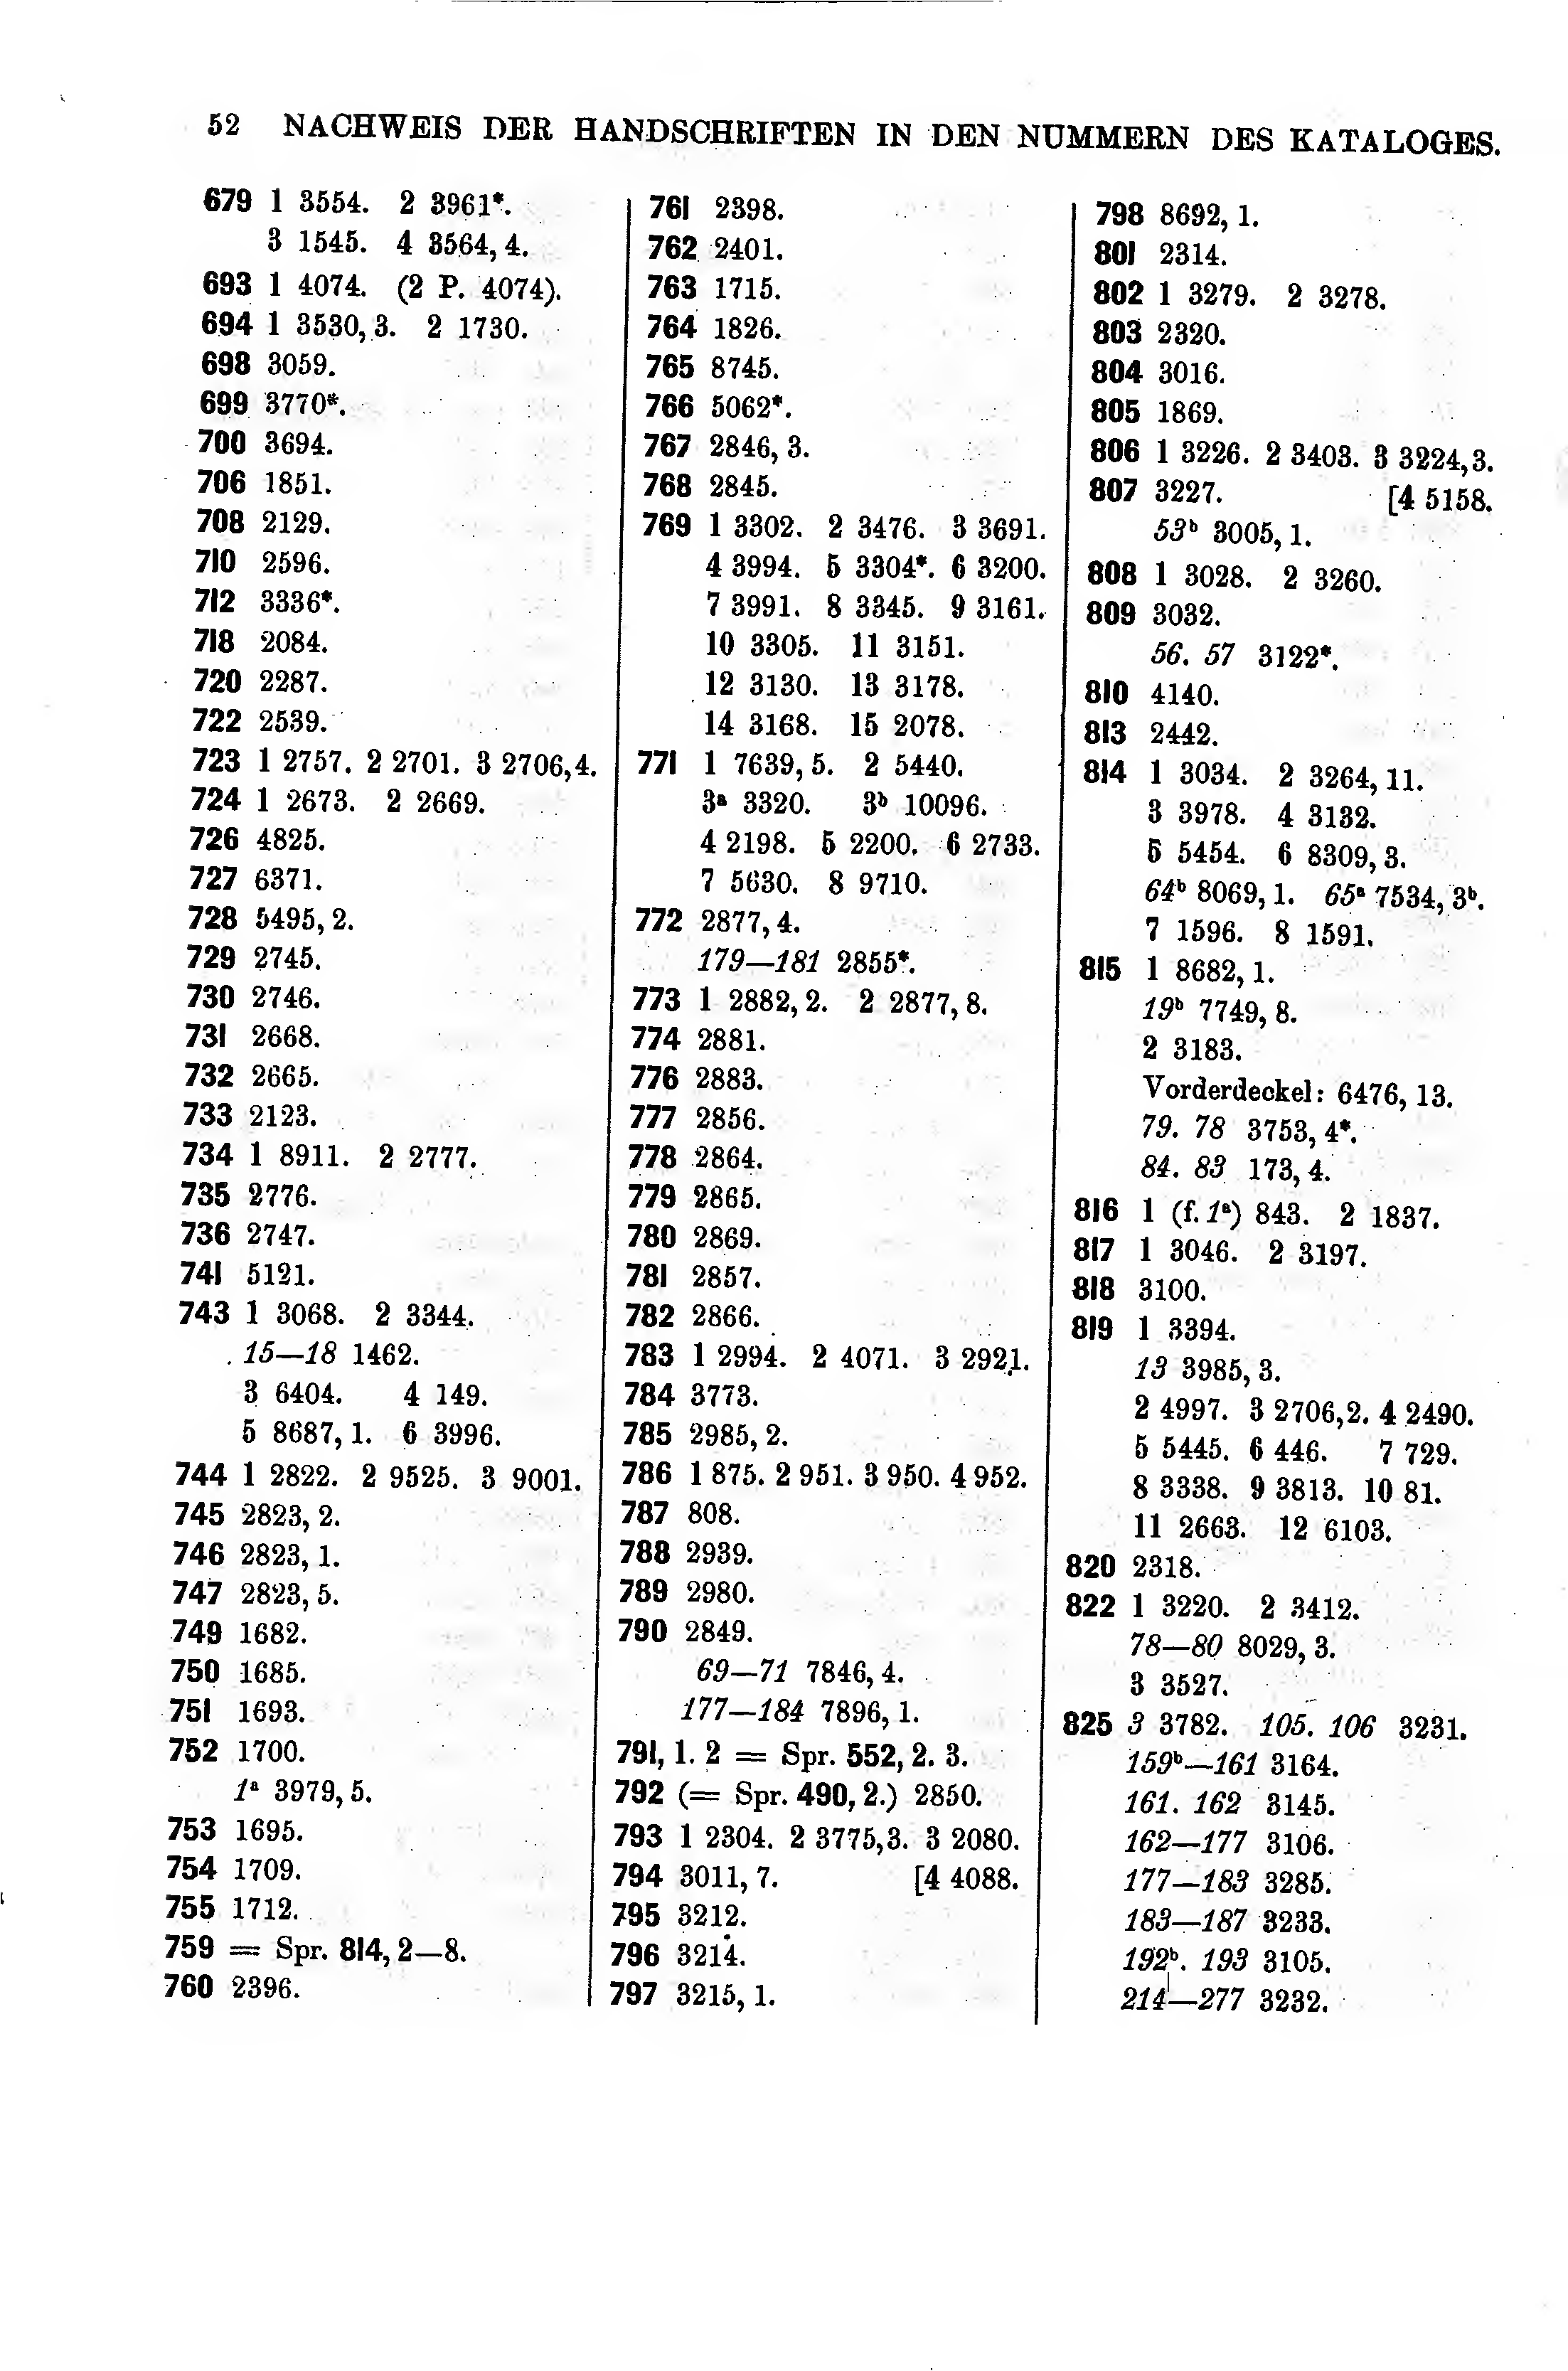 52 NACHWEIS DER HANDSCHRIFTEN IN DEN NUMMERN DES KATALOGES.
679 1 3554. 2 3961*.
3 1545. 4 3564, 4.
693 1 4074. (2 P. 4074).
694 1 3530, 3. 2 1730.
698 3059.
699 3770*.
700 3694.
706 1851.
708 2129.
710 2596.
712 3336*.
718 2084.
720 2287.
722 2539.
723 1 2757. 2 2701. 3 2706,4.
724 1 2673. 2 2669.
726 4825.
727 6371.
728 5495, 2.
729 2745.
730 2746.
731 2668.
732 2665.
733 2123.
734 1 8911. 2 2777.
735 2776.
736 2747.
741 5121.
743 1 3068. 2 3344.
15—18 1462.
3 6404. 4 149.
5 8687, 1. 6 3996.
744 1 2822. 2 9525. 3 9001.
745 2823, 2.
746 2823, 1.
747 2823, 5.
749 1682.
750 1685.
751 1693.
752 1700.
1ᵃ 3979, 5.
753 1695.
754 1709.
755 1712.
759 = Spr. 814, 2—8.
760 2396.
761 2398.
762 2401.
763 1715.
764 1826.
765 8745.
766 5062*.
767 2846, 3.
768 2845.
769 1 3302. 2 3476. 3 3691.
4 3994. 5 3304*. 6 3200.
7 3991. 8 3345. 9 3161.
10 3305. 11 3151.
12 3130. 13 3178.
14 3168. 15 2078.
771 1 7639, 5. 2 5440.
3ᵃ 3320. 3ᵇ 10096.
4 2198. 5 2200. 6 2733.
7 5630. 8 9710.
772 2877, 4.
179—181 2855*.
773 1 2882, 2. 2 2877, 8.
774 2881.
776 2883.
777 2856.
778 2864.
779 2865.
780 2869.
781 2857.
782 2866.
783 1 2994. 2 4071. 3 2921.
784 3773.
785 2985, 2.
786 1 875. 2 951. 3 950. 4 952.
787 808.
788 2939.
789 2980.
790 2849.
69—71 7846, 4.
177—184 7896, 1.
791, 1. 2 = Spr. 552, 2. 3.
792 (= Spr. 490, 2.) 2850.
793 1 2304. 2 3775,3. 3 2080.
794 3011, 7. [4 4088.
795 3212.
796 3214.
797 3215, 1.
798 8692, 1.
801 2314.
802 1 3279. 2 3278.
803 2320.
804 3016.
805 1869.
806 1 3226. 2 3403. 3 3224,3.
807 3227. [4 5158.
53ᵇ 3005, 1.
808 1 3028. 2 3260.
809 3032.
56. 57 3122*.
810 4140.
813 2442.
814 1 3034. 2 3264, 11.
3 3978. 4 3132.
5 5454. 6 8309, 3.
64ᵇ 8069, 1. 65ᵃ 7534, 3ᵇ.
7 1596. 8 1591.
815 1 8682, 1.
19ᵇ 7749, 8.
2 3183.
Vorderdeckel: 6476, 13.
79. 78 3753, 4*.
84. 83 173, 4.
816 1 (f. 1ᵃ) 843. 2 1837.
817 1 3046. 2 3197.
818 3100.
819 1 3394.
13 3985, 3.
2 4997. 3 2706,2. 4 2490.
5 5445. 6 446. 7 729.
8 3338. 9 3813. 10 81.
11 2663. 12 6103.
820 2318.
822 1 3220. 2 3412.
78—80 8029, 3.
3 3527.
825 3 3782. 105. 106 3231.
159ᵇ—161 3164.
161. 162 3145.
162—177 3106.
177—183 3285.
183—187 3233.
192ᵇ. 193 3105.
214—277 3232.